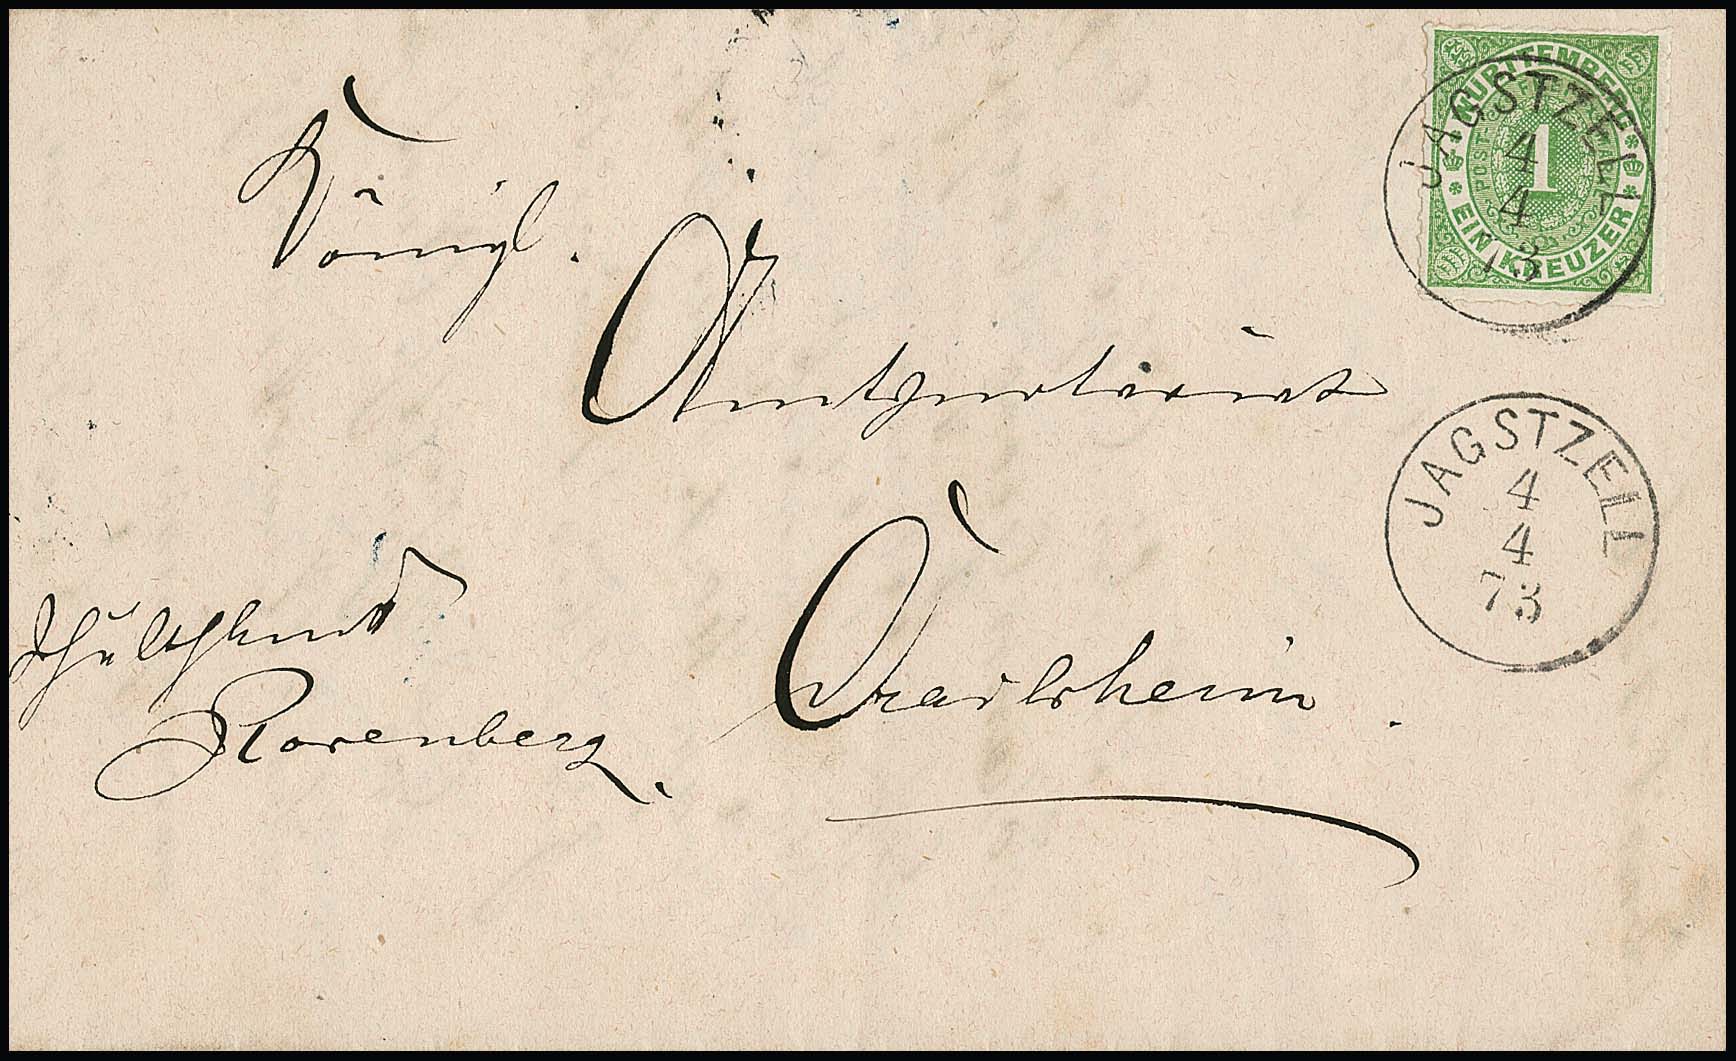 WÜRTTEMBERG
FREIMARKE
POST-
1
EIN KREUZER
JAGSTZELL
4
4
73
Königl.
Amtsnotariat
JAGSTZELL
4
4
73
Crailsheim.
Schultheiß
Rosenberg.